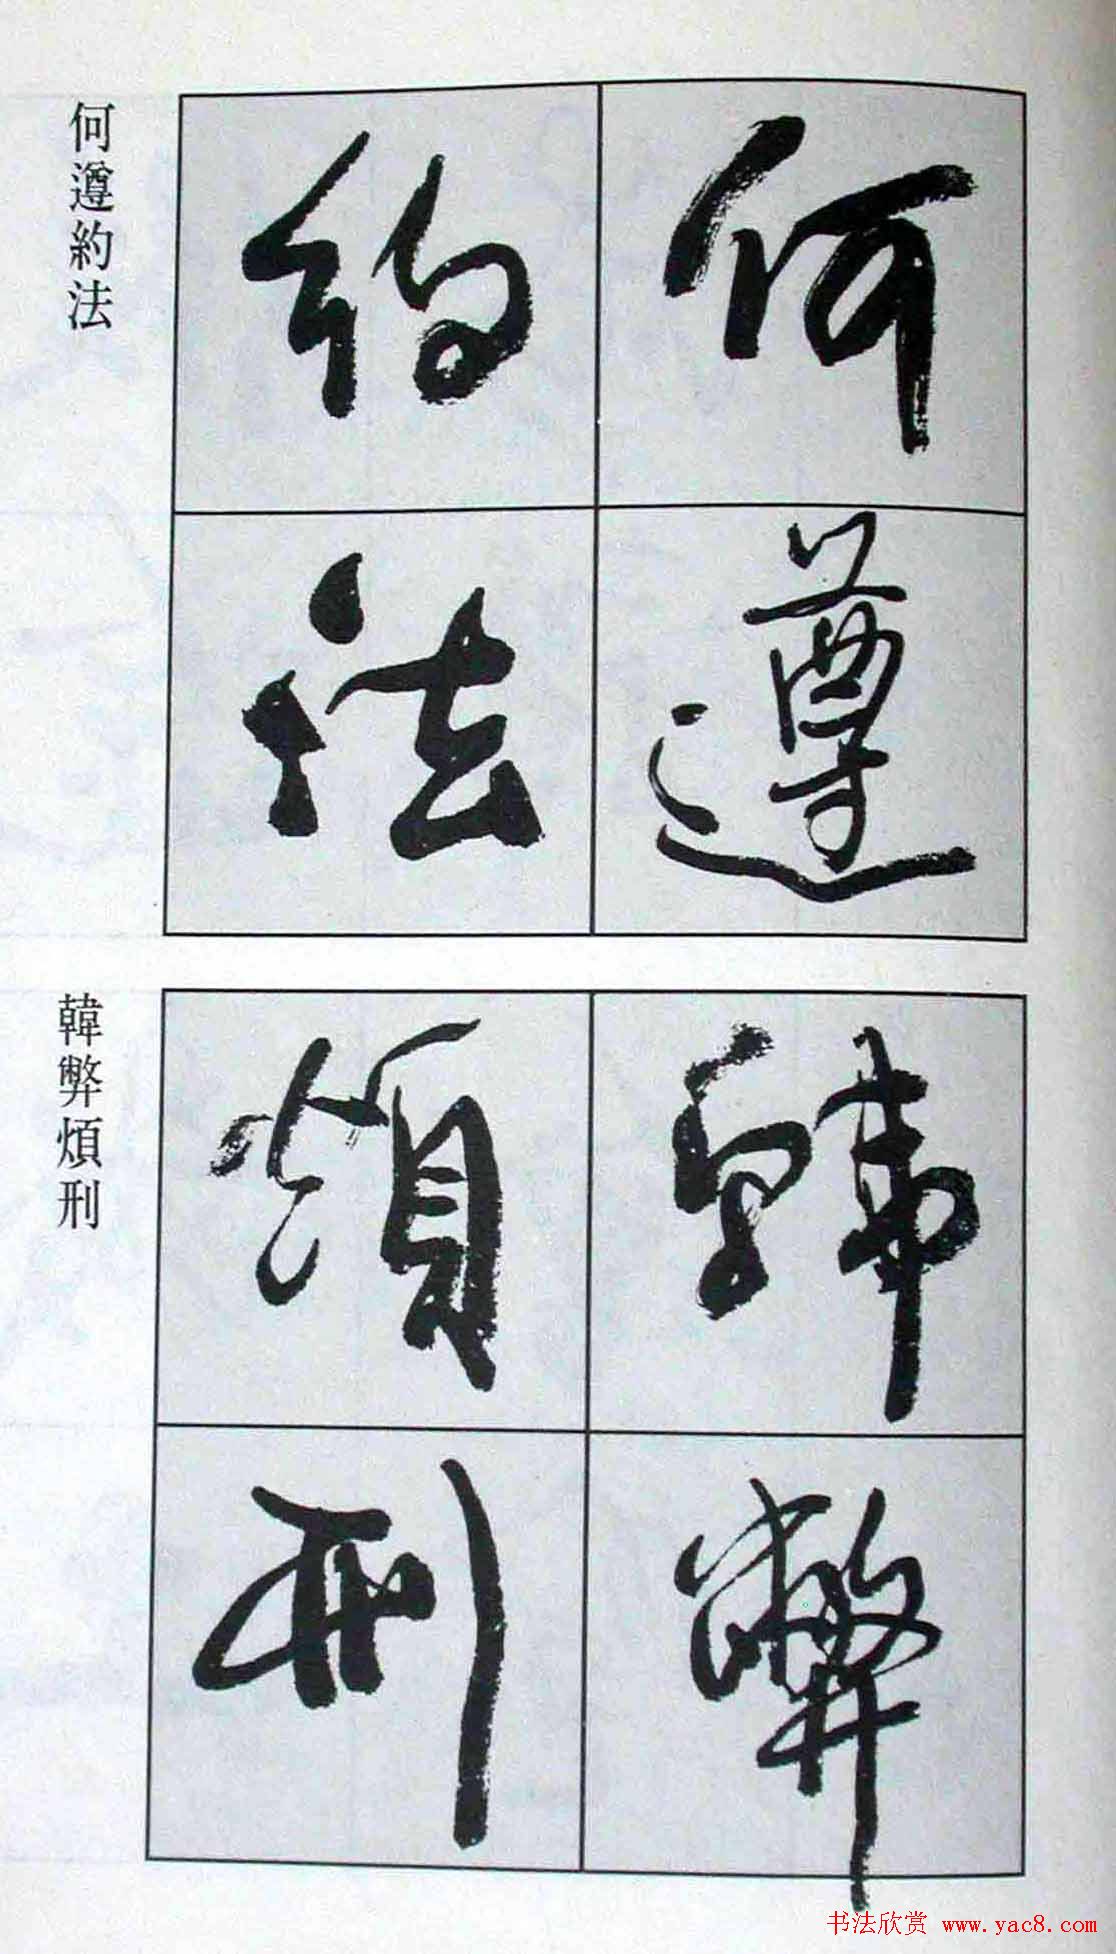 何遵
約法
何遵約法
韓弊
煩刑
韓弊煩刑
书法欣赏 www.yac8.com